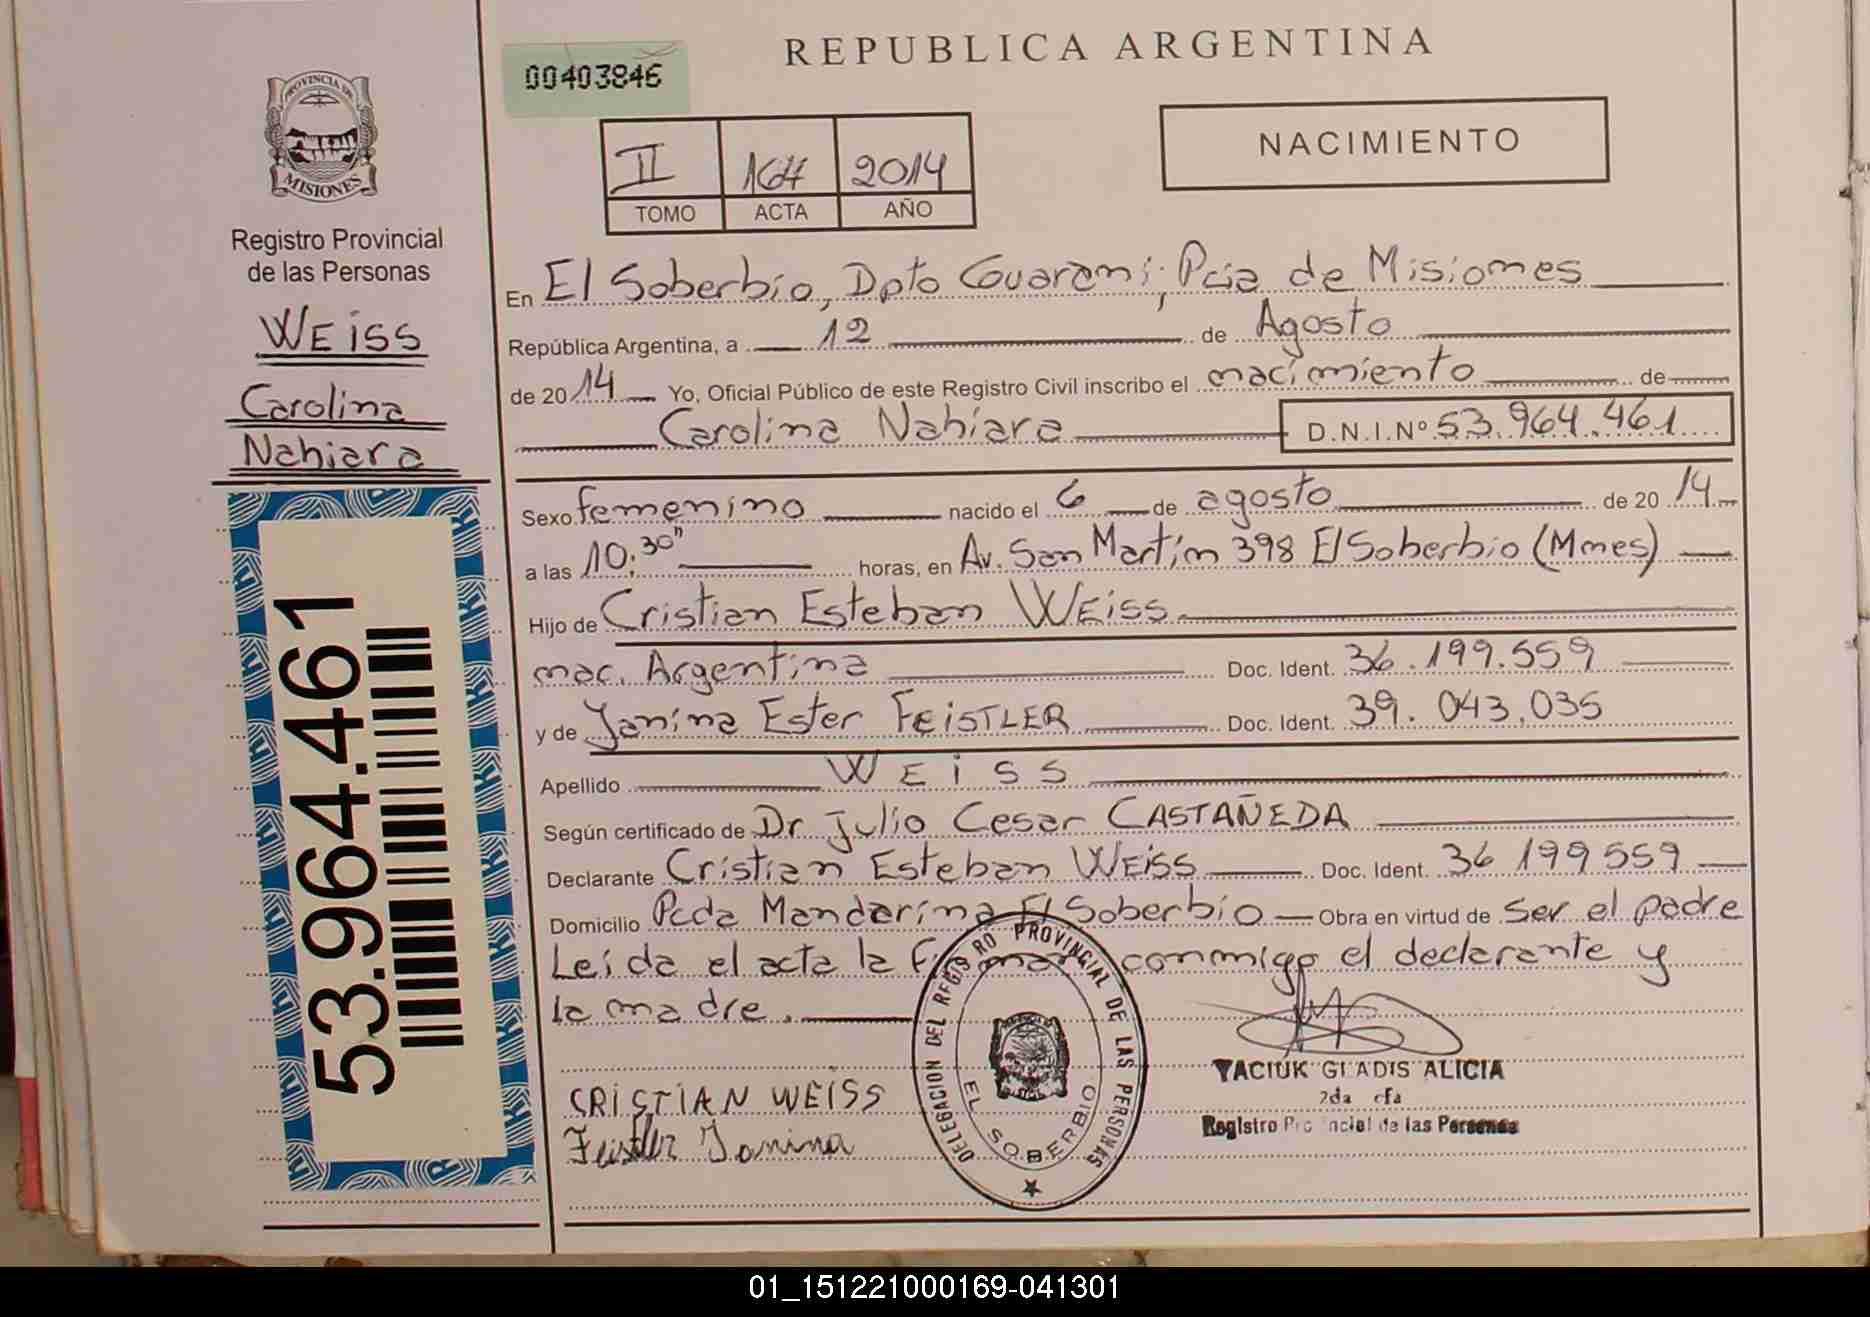 REPUBLICA ARGENTINA
00403846
NACIMIENTO
II 164 2014
TOMO ACTA AÑO
PROVINCIA DE
MISIONES
Registro Provincial
de las Personas
WEiSS
Carolina
Nahiara
53.964.461
En El Soberbio, Dpto Guarani; Pcia de Misiones
República Argentina, a 12 de Agosto
de 2014 Yo, Oficial Público de este Registro Civil inscribo el nacimiento de
Carolina Nahiara D.N.I.Nº 53.964.461
Sexo femenino nacido el 6 de agosto de 2014
a las 10:30" horas, en Av. San Martín 398 El Soberbio (Mnes)
Hijo de Cristian Esteban WEiSS
nac. Argentina Doc. Ident. 36.199.559
y de Yanina Ester FEiSTLER Doc. Ident. 39.043.035
Apellido WEiSS
Según certificado de Dr Julio Cesar CASTAÑEDA
Declarante Cristian Esteban WEiSS Doc. Ident. 36 199 559
Domicilio Pcda Mandarina El Soberbio Obra en virtud de Ser el padre
Leída el acta la conmigo el declarante y
la madre.
DELEGACION DEL REGISTRO PROVINCIAL DE LAS PERSONAS
EL SOBERBIO
CRiSTiAN WEiSS
Feistler Janina
YACIUK GLADIS ALICIA
2da
Registro Provincial de las Personas
01_151221000169-041301